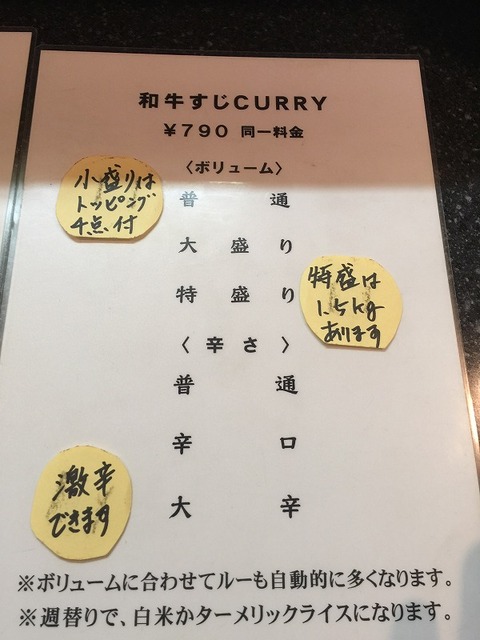 和牛すじCURRY
￥790 同一料金
〈ボリューム〉
小盛りは
トッピング
4点付
普通
大盛り
特盛り
特盛は
1.5kg
あります
〈辛さ〉
普通
辛口
大辛
激辛
できます
※ボリュームに合わせてルーも自動的に多くなります。
※週替りで、白米かターメリックライスになります。